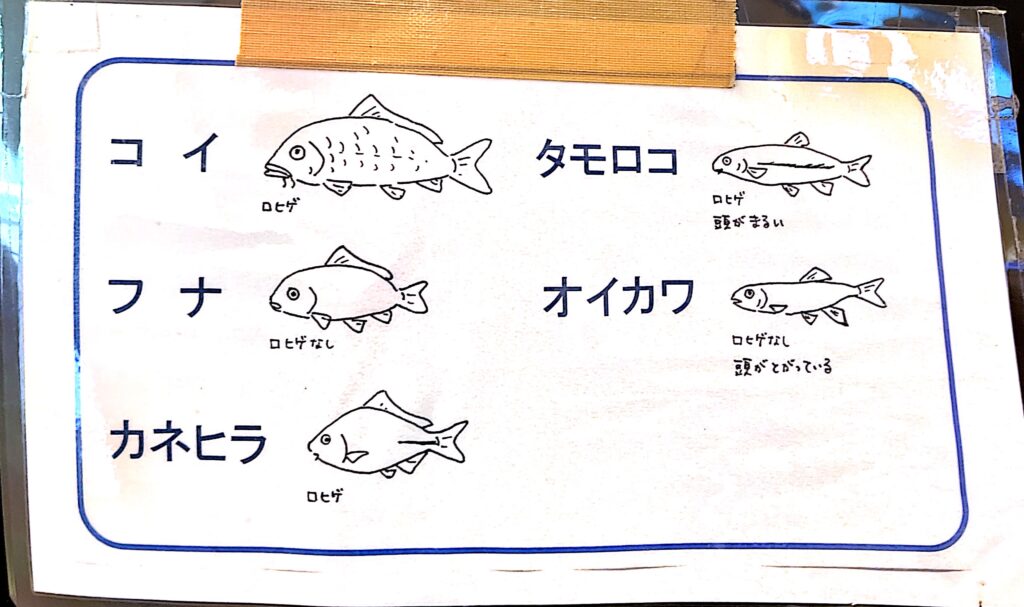 コイ
口ヒゲ
フナ
口ヒゲなし
カネヒラ
口ヒゲ
タモロコ
口ヒゲ
頭がまるい
オイカワ
口ヒゲなし
頭がとがっている